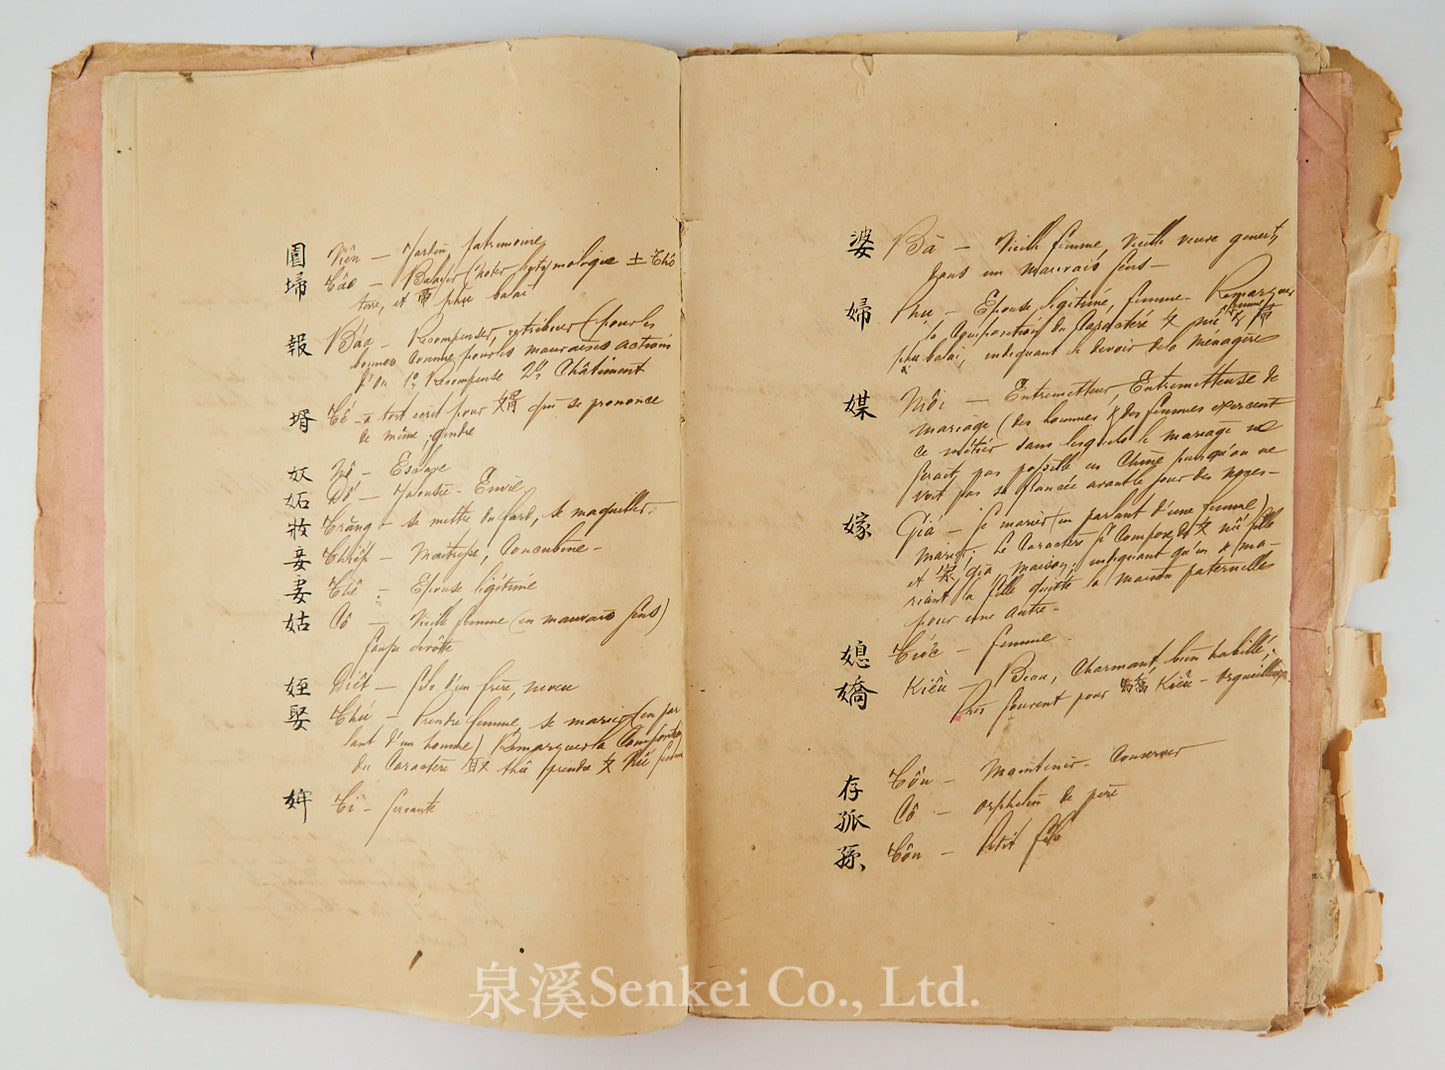 園 Viên — Jardin, patrimoine
埽 Tảo — Balayer (Noter l'etymologique 土 Thổ
terre, et 帚 phụ balai
報 Báo — Recompenser, retribuer (pour les
bonnes comme pour les mauvaises actions
1º, Recompense 2º, Châtiment
壻 Tê — a tort ecrit pour 婿 qui se prononce
de même, gendre
奴 Nô — Esclave
妬 Đố — Jalousie — Envie
妝 Trang — se mettre du fard, se maquiller.
妾 Thiếp — Maîtresse, Concubine —
妻 Thê — Epouse légitime
姑 Cô — Vieille femme (en mauvais sens)
姪 Điệt — fils d'un frère, neveu
娶 Thú — Prendre femme, se marier (en par
lant d'un homme) Remarquer la Composition
du Caractère 取 thủ prendre 女 Nữ femme
婢 Tì — servante
婆 Bà — Vieille femme, Vieille veuve
dans un mauvais sens —
婦 Phu — Epouse légitime, femme — Remarquer
la Composition du Caractère 女 nữ femme & 帚
phu balai, indiquant le devoir de la ménagère
媒 Môi — Entremetteur, Entremetteuse de
mariage (des hommes & des femmes exercent
ce métier sans lesquels le mariage ne
serait pas possible en Chine puisqu'on ne
voit pas sa fiancée avant le jour des noces —
嫁 Giá — se marier (en parlant d'une femme)
mariage. Le Caractère se Compose de 女 nữ fille
et 家 gia maison; indiquant qu'en se ma-
riant la fille quitte la maison paternelle
pour une autre —
媳 Tức — femme —
嬌 Kiều — Beau, Charmant, bien habillé,
Pris souvent pour 驕 Kiêu — orgueilleux
存 Tồn — Maintenir — Conserver
孤 Cô — orphelin de père
孫 Tôn — Petit fils
泉溪 Senkei Co., Ltd.